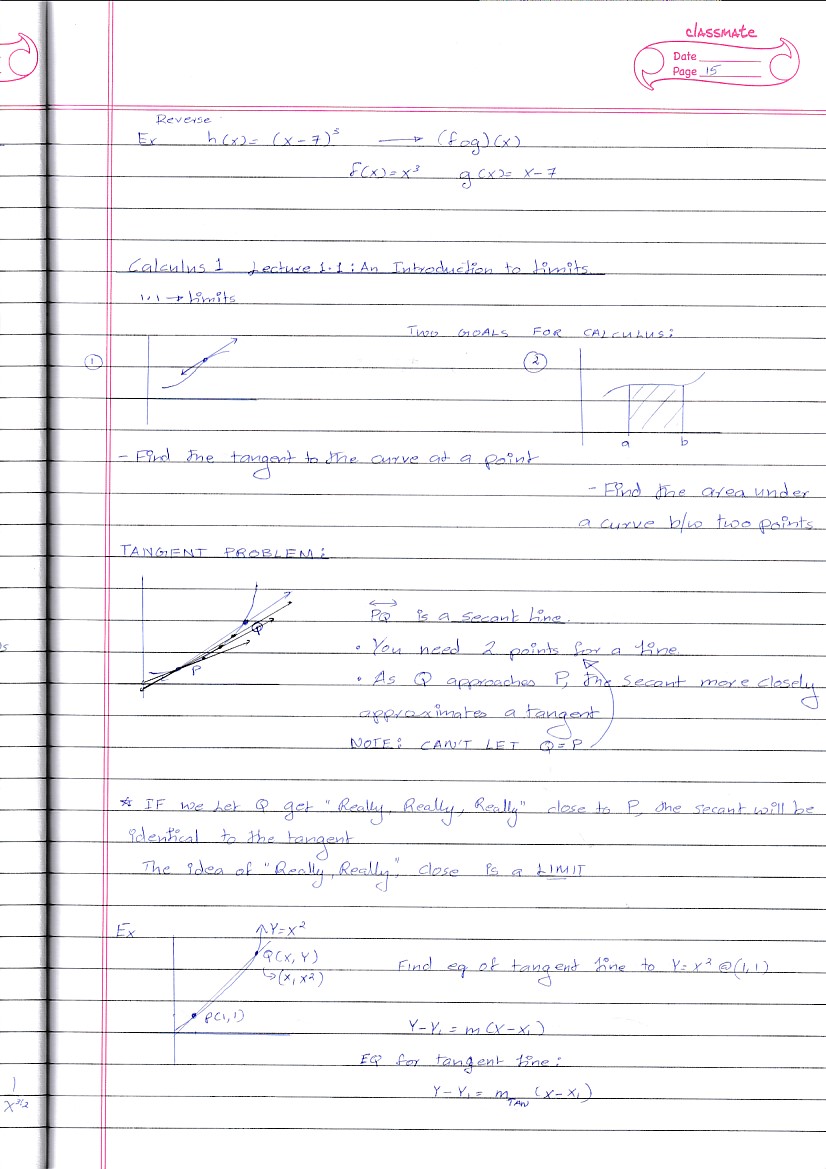 classmate
Date
Page 15
Reverse
Ex h(x) = (x-7)³ → (fog)(x)
f(x) = x³ g(x) = x-7
Calculus 1 Lecture 1.1: An Introduction to Limits
1.1 → Limits
TWO GOALS FOR CALCULUS:
① ②
a b
- Find the tangent to the curve at a point
- Find the area under
a curve b/w two points
TANGENT PROBLEM:
P Q
PQ is a secant line.
• You need 2 points for a line
• As Q approaches P, the secant more closely
approximates a tangent
NOTE: CAN'T LET Q = P
* IF we let Q get "Really, Really, Really" close to P, the secant will be
identical to the tangent
The idea of "Really, Really," close is a LIMIT
Ex Y = X²
Q(X, Y)
↳ (X, X²)
P(1,1)
Find eq of tangent line to Y = X² @ (1,1)
Y - Y₁ = m (X - X₁)
EQ for tangent line:
Y - Y₁ = m TAN (X - X₁)
1
X^3/2